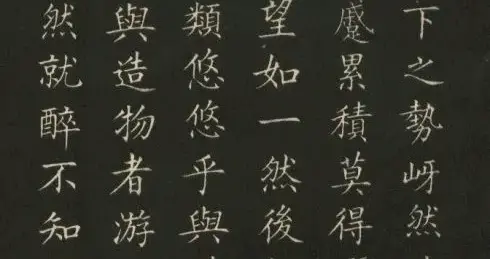 下之勢岈然
蹙累積莫得
望如一然後
類悠悠乎與
與造物者游
然就醉不知